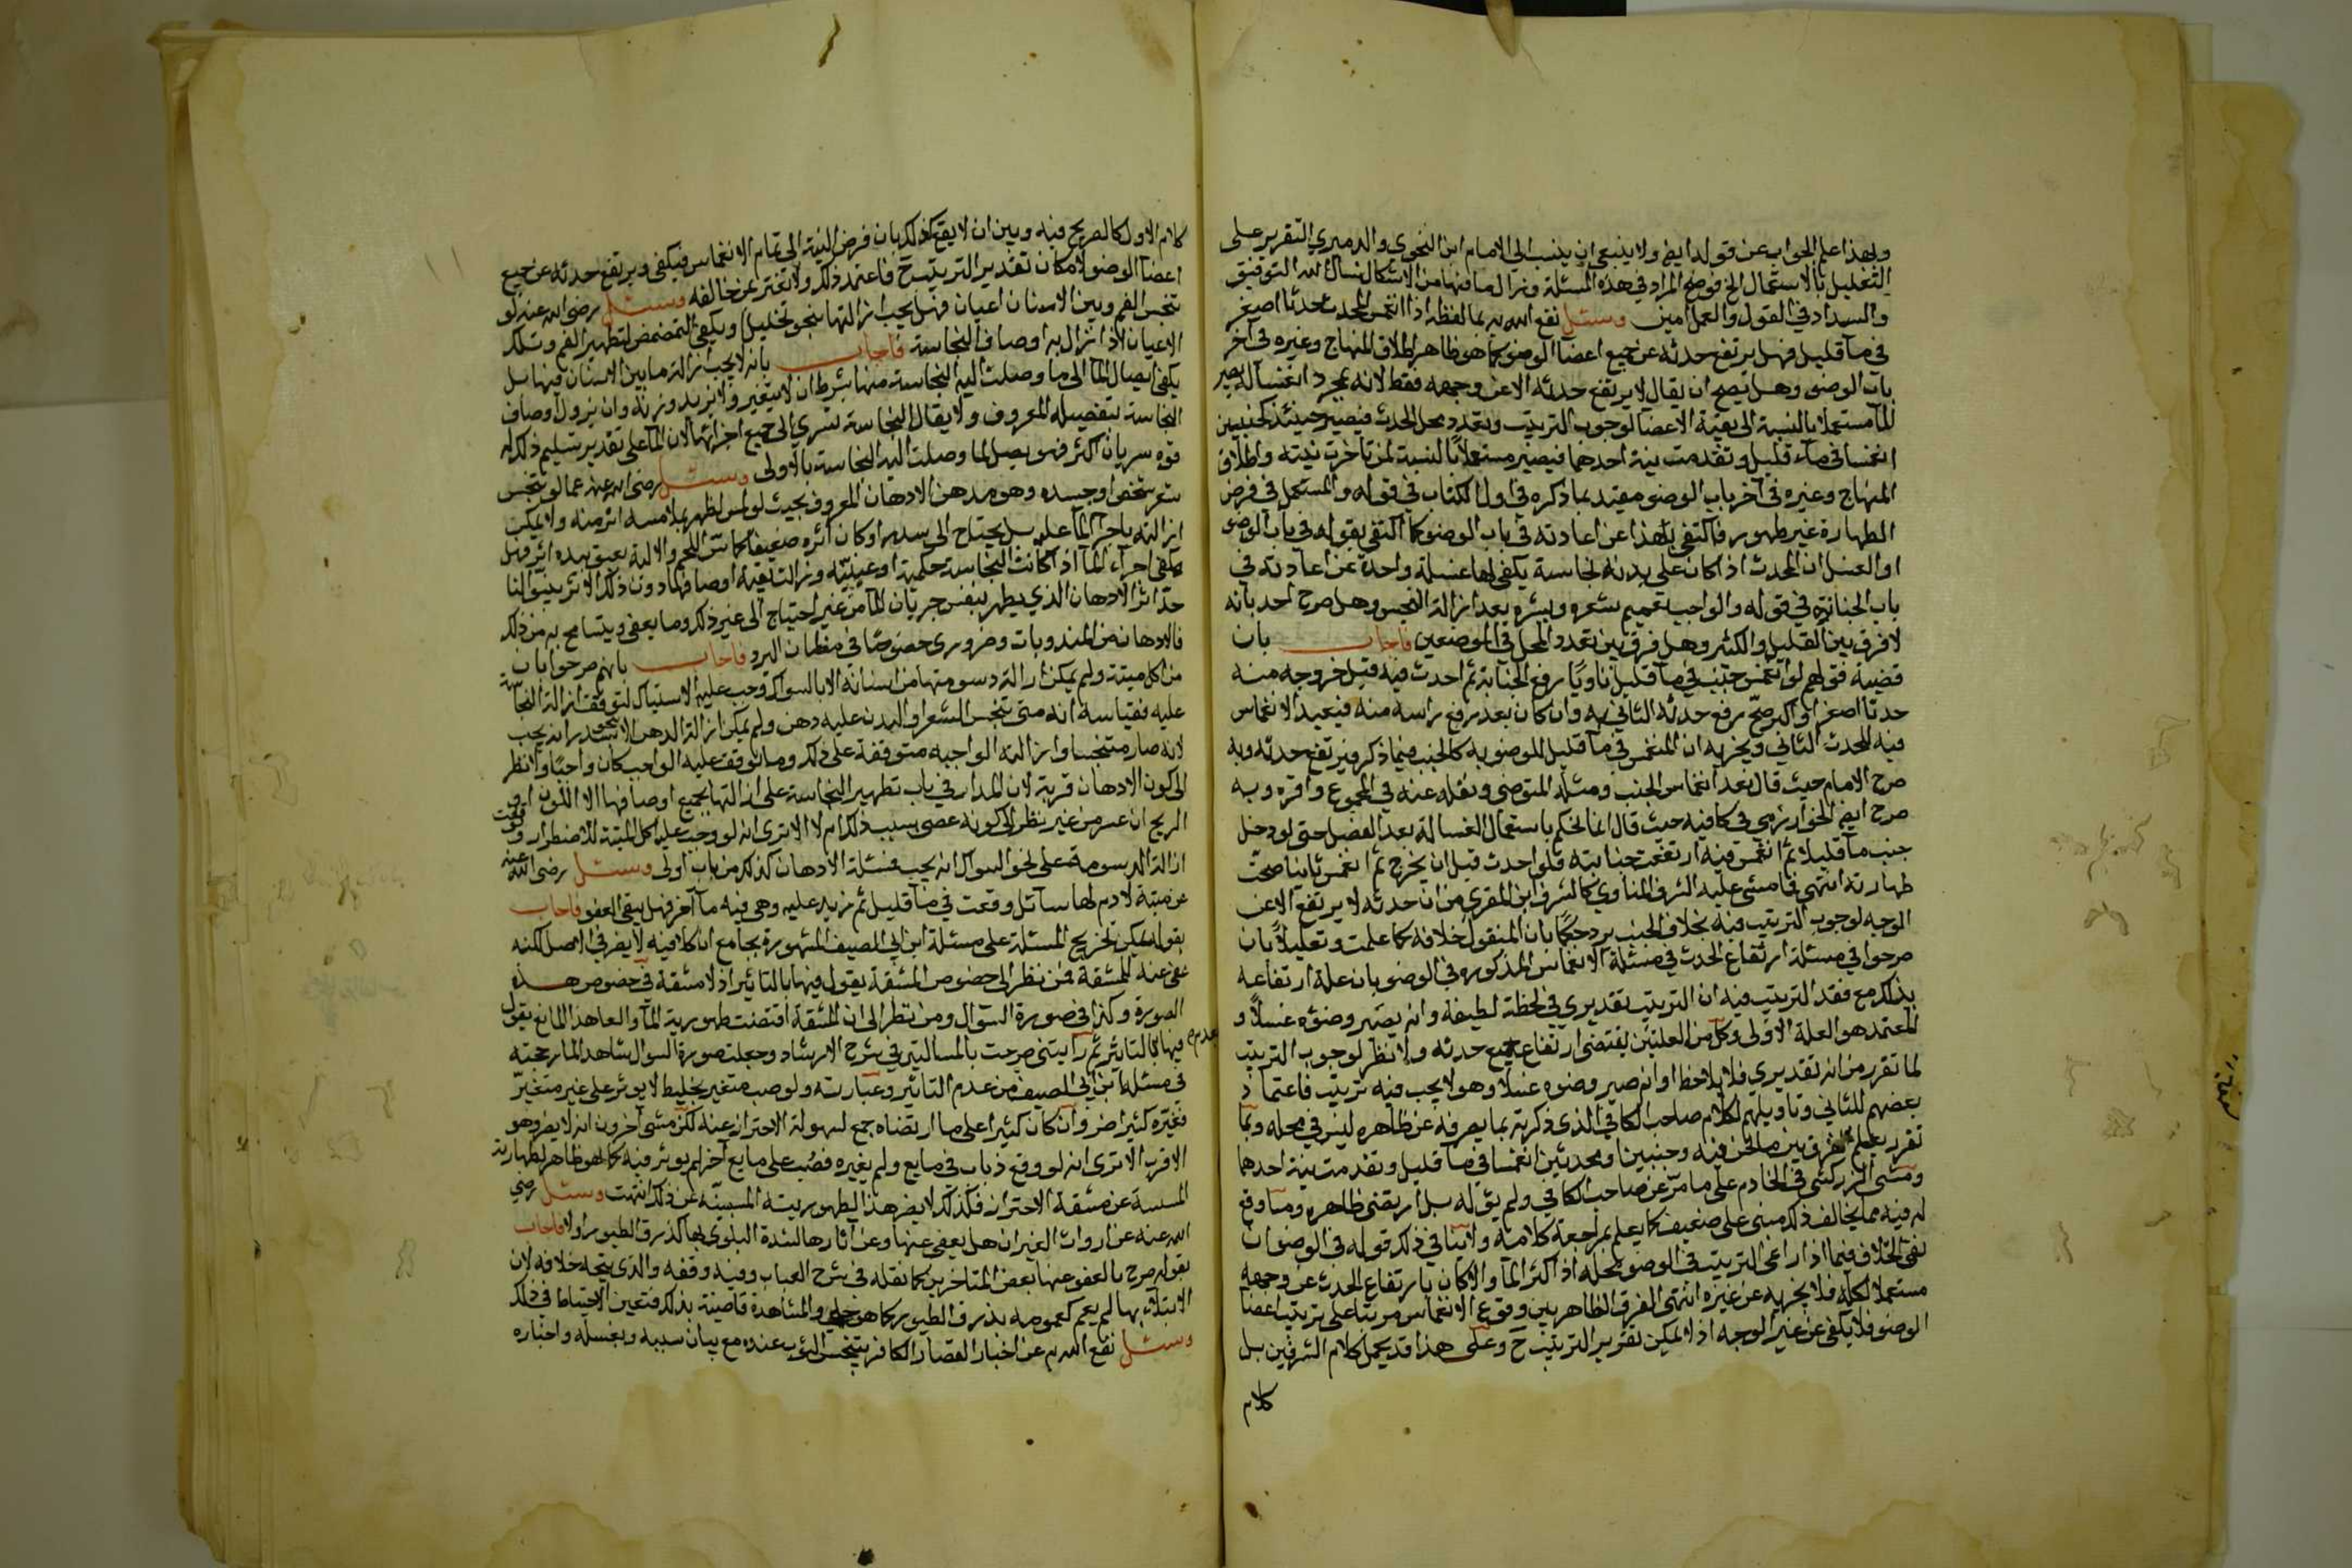 ولهذا علم الجواب عن قوله ايضا ولا ينبغي ان ينسب الى الامام ابن النحوي والدميري التقرير على
التعليل بالاستعمال الخ فوضح المراد في هذه المسئلة وزال ما فيها من الاشكال نسال الله التوفيق
والسداد في القول والعمل امين وسئل نفع الله به بما لفظه اذا انغمس المحدث محدثا اصغر
في ماء قليل فهل يرتفع حدثه عن جميع اعضا الوضو كما هو ظاهر اطلاق المنهاج وغيره في آخر
باب الوضو وهل يصح ان يقال لا يرتفع حدثه الا عن وجهه فقط لانه بمجرد انغساله يصير
الما مستعملا بالنسبة الى بقية الاعضا لوجوب الترتيب وتعدد محل الحدث فيصير حينئذ كجنبين
انغمسا في ماء قليل وتقدمت نية احدهما فيصير مستعملا بالنسبة لمن تاخرت نيته واطلاق
المنهاج وغيره في آخر باب الوضو مقيد بما ذكره في اول الكتاب في قوله والمستعمل في فرض
الطهارة غير طهور فاكتفى بهذا عن اعادته في باب الوضو كما اكتفى بقوله في باب الوضو
او الغسل ان المحدث اذا كان على بدنه نجاسة يكفي لها غسلة واحدة عن اعادته في
باب الجنازة في قوله والواجب تعميم شعره وبشره بعد ازالة النجس وهل صرح احد بانه
لا فرق بين القليل والكثير وهل فرق بين تعدد المحل في الموضعين فاجاب بان
قضية قولهم لو انغمس جنب في ماء قليل ناويا رفع الجنابة ثم احدث فيه قبل خروجه منه
حدثا اصغر او اكبر صح رفع حدثه الثاني به وان كان بعد رفع راسه منه فيعيد الانغماس
فيه للحدث الثاني ويجزيه ان المنغمس في ماء قليل للوضو به كالجنب فيما ذكر فيرتفع حدثه وبه
صرح الامام حيث قال بعد انغماس الجنب ومثله المتوضي ونقله عنه في المجموع واقره وبه
صرح ايضا الخوارزمي في كافيه حيث قال انما لنحكم باستعمال الغسالة بعد الفصل حتى لو دخل
جنب ماء قليلا ثم انغمس فيه ارتفعت جنابته فلو احدث قبل ان يخرج ثم انغمس ثانيا صحت
طهارته انتهى فما مشى عليه الشرف المناوي كالشرف ابن المقري من ان حدثه لا يرتفع الا عن
الوجه لوجوب الترتيب فيه بخلاف الجنب يرد حكما بان المنقول خلافه كما علمت وتعليلا بان
صرحوا في مسئلة ارتفاع الحدث في مسئلة الانغماس المذكورة في الوضو بان علة ارتفاعه
بذلك مع فقد الترتيب فيه ان الترتيب تقديري في لحظة لطيفة وانه يصير وضوه غسلا و
المعتمد هو العلة الاولى وكل من العلتين يقتضي ارتفاع جميع حدثه ولا نظر لوجوب الترتيب
لما تقرر من انه تقديري فلا يلاحظ او انه صير وضوه غسلا وهو لا يجب فيه ترتيب فاعتماد
بعضهم للثاني وتاويلهم لكلام صاحب الكافي الذي ذكرته بما يصرفه عن ظاهره ليس في محله وبما
تقرر يعلم الفرق بين ما نحن فيه وجنبين او محدثين انغمسا في ماء قليل وتقدمت نية احدهما
ومشى الزركشي في الخادم على ما مر عن صاحب الكافي ولم يؤوله بل ارتضى ظاهره وما وقع
له فيه مما يخالف ذلك مبني على ضعيف كما يعلم بمراجعة كلامه ولا ينافي ذلك قوله في الوضو ان
نفي الخلاف فيما اذا راعى الترتيب في الوضو محله اذا كثر الما والا كان بارتفاع الحدث عن وجهه
مستعملا لكله فلا يجزيه عن غيره انتهى الفرق الظاهر بين وقوع الانغماس مرتبا على ترتيب اعضا
الوضو فلا يكفي عن غير الوجه اذ لا يمكن تقرير الترتيب ح وعلى هذا قد يحمل كلام الشرفين بل
كلام
كلام الاول كالصريح فيه وبين ان لا يقع كذلك بان فرض النية الى تمام الانغماس فيكفي ويرتفع حدثه عن جميع
اعضا الوضو لامكان تقدير الترتيب ح فاعتمد ذلك ولا تغتر بمن خالفه وسئل رضي الله عنه لو
تنجس الفم وبين الاسنان اعيان فهل يجب ازالتها بنحو تخليل او يكفي التمضمض لتطهير الفم وتلك
الاعيان اذا زال به اوصاف النجاسة فاجاب بانه لا يجب ازالة ما بين الاسنان فيها بل
يكفي ايصال الما الى ما وصلت اليه النجاسة منها بشرط ان لا يتغير ولا يزيد وزنه وان يزول اوصاف
النجاسة بتفصيله المعروف ولا يقال النجاسة تسري الى جميع اجزائها لان الما على تقدير تسليم ذلك له
قوة سريان اكثر فهو يصل لما وصلت اليه النجاسة بالاولى وسئل رضي الله عنه عما لو تنجس
شعر شخص او جسده وهو مدهن الادهان المعروف بحيث لو لمس لظهر بملامسه اثر منه ولا يمكن
ازالته باجرا الما عليه بل يحتاج الى سدر او كان اثره ضعيفا كماس اللحم والالية يعبق بيده اثر فهل
يكفي اجراء الما اذا كانت النجاسة حكمية او عينية وزالت بقية اوصافها دون ذلك الاثر بينوا لنا
حد اثر الادهان الذي يطهر بنفس جريان الما من غير احتياج الى غير ذلك وما يعفى ويتسامح به من ذلك
فالادهان من المندوبات وضروري خصوصا في مظان البرد فاجاب بانهم صرحوا بان
من اكل ميتة ولم يمكن ازالة دسومتها من اسنانه الا بالسواك وجب عليه الاستياك لتوقف ازالة النجاسة
عليه فقياسه انه متى تنجس الشعر او البدن عليه دهن ولم يمكن ازالة الدهن الا بنحو سدر انه يجب
لانه صار متنجسا وازالته الواجبه متوقفة على ذلك وما توقف عليه الواجب كان واجبا ولا نظر
الى كون الادهان قربة لان المدار في باب تطهير النجاسة على ازالتها بجميع اوصافها الا اللون او
الريح ان عسر من غير نظر الى كونه عصى بسبب ذلك ام لا الا ترى انه لو وجب عليه اكل الميتة للاضطرار وتوقفت
ازالة الدسومة على نحو السواك انه يجب فمسئلة الادهان كذلك من باب اولى وسئل رضي الله عنه
عن ميتة لا دم لها سائل وقعت في ماء قليل ثم زيد عليه وهي فيه ماء آخر فهل يبقى العفو فاجاب
بقوله يمكن تخريج المسئلة على مسئلة ابن ابي الصيف المشهورة بجامع ان كلا فيه لا يضر في الاصل لكنه
عفي عنه للمشقة فمن نظر الى خصوص المشقة يقول فيها بالتاثير اذ لا مشقة في خصوص هذه
الصورة وكذا في صورة السؤال ومن نظر الى ان المشقة اقتضت طهورية الما والعاهد المانع يقول
فيها بعدم التاثير ثم رايتني صرحت بالمسالتين في شرح الارشاد وجعلت صورة السوال شاهدا لما رجحته
في مسئلة ابن ابي الصيف من عدم التاثير وعبارته ولو صب متغير بخليط لا يؤثر على غير متغير
فغيره كثيرا ضر وان كان كثيرا على ما ارتضاه جمع لسهولة الاحتراز عنه لكن مشى آخرون انه لا يضر وهو
الاقرب الا ترى انه لو وقع ذباب في مايع ولم يغيره فصب على مايع آخر لم يؤثر فيه كما هو ظاهر لطهارته
المسببة عن مشقة الاحتراز فكذلك لا يضر هذا لطهوريته المسببة عن ذلك انتهت وسئل رضي
الله عنه عن ارواث الفيران هل يعفى عنها وعن آثارها لشدة البلوى بها كذرق الطيور اولا فاجاب
بقوله صرح بالعفو عنها بعض المتاخرين كما نقله في شرح العباب وفيه وقفه والذي يتجه خلافه لان
الابتلاء بها لم يعم كعمومه بذرق الطيور كما هو جلي والمشاهدة قاضية بذلك فتعين الاحتياط في ذلك
وسئل نفع الله به عن اخبار القصار الكافر بتنجس الثوب عنده مع بيان سببه وبغسله واخباره